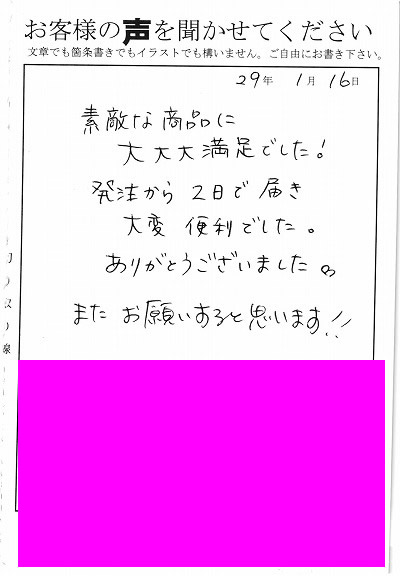 お客様の声を聞かせてください
文章でも箇条書きでもイラストでも構いません。ご自由にお書き下さい。
29年 1月 16日
素敵な商品に
大大大満足でした!
発注から 2日で届き
大変 便利でした。
ありがとうございました
また お願いすると思います!!